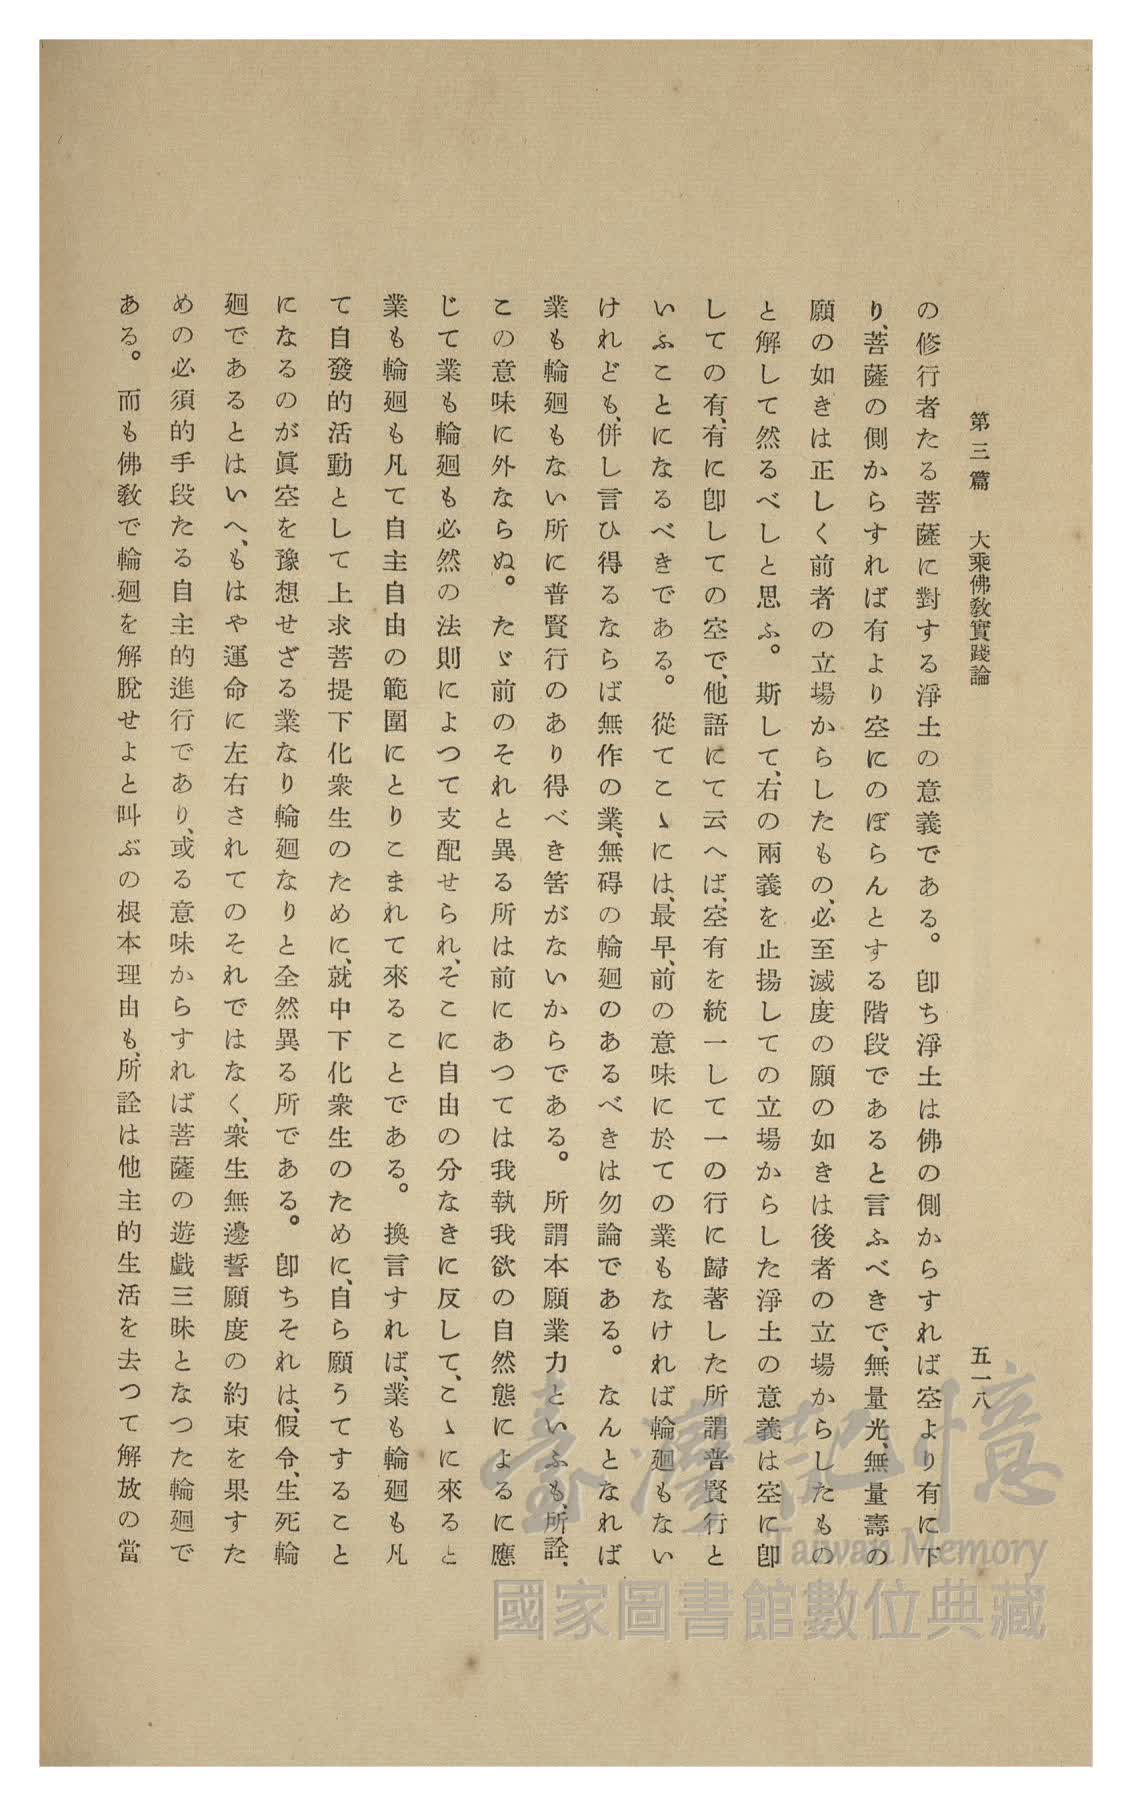 第三篇　大乘佛敎實踐論
五一八
の修行者たる菩薩に對する淨土の意義である。卽ち淨土は佛の側からすれば空より有に下
り、菩薩の側からすれば有より空にのぼらんとする階段であると言ふべきで、無量光、無量壽の
願の如きは正しく前者の立場からしたもの、必至滅度の願の如きは後者の立場からしたもの
と解して然るべしと思ふ。斯して、右の兩義を止揚しての立場からした淨土の意義は空に卽
しての有、有に卽しての空で、他語にて云へば、空有を統一して一の行に歸著した所謂普賢行と
いふことになるべきである。從てこゝには、最早、前の意味に於ての業もなければ輪廻もない
けれども、併し言ひ得るならば無作の業、無碍の輪廻のあるべきは勿論である。なんとなれば
業も輪廻もない所に普賢行のあり得べき筈がないからである。所謂本願業力といふも、所詮、
この意味に外ならぬ。たゞ前のそれと異る所は前にあつては我執我欲の自然態によるに應
じて業も輪廻も必然の法則によつて支配せられ、そこに自由の分なきに反して、こゝに來ると
業も輪廻も凡て自主自由の範圍にとりこまれて來ることである。換言すれば、業も輪廻も凡
て自發的活動として上求菩提下化衆生のために、就中下化衆生のために、自ら願うてすること
になるのが眞空を豫想せざる業なり輪廻なりと全然異る所である。卽ちそれは、假令、生死輪
廻であるとはいへ、もはや運命に左右されてのそれではなく、衆生無邊誓願度の約束を果すた
めの必須的手段たる自主的進行であり、或る意味からすれば菩薩の遊戲三昧となつた輪廻で
ある。而も佛敎で輪廻を解脫せよと叫ぶの根本理由も、所詮は他主的生活を去つて解放の當
臺灣記憶
Taiwan Memory
國家圖書館數位典藏